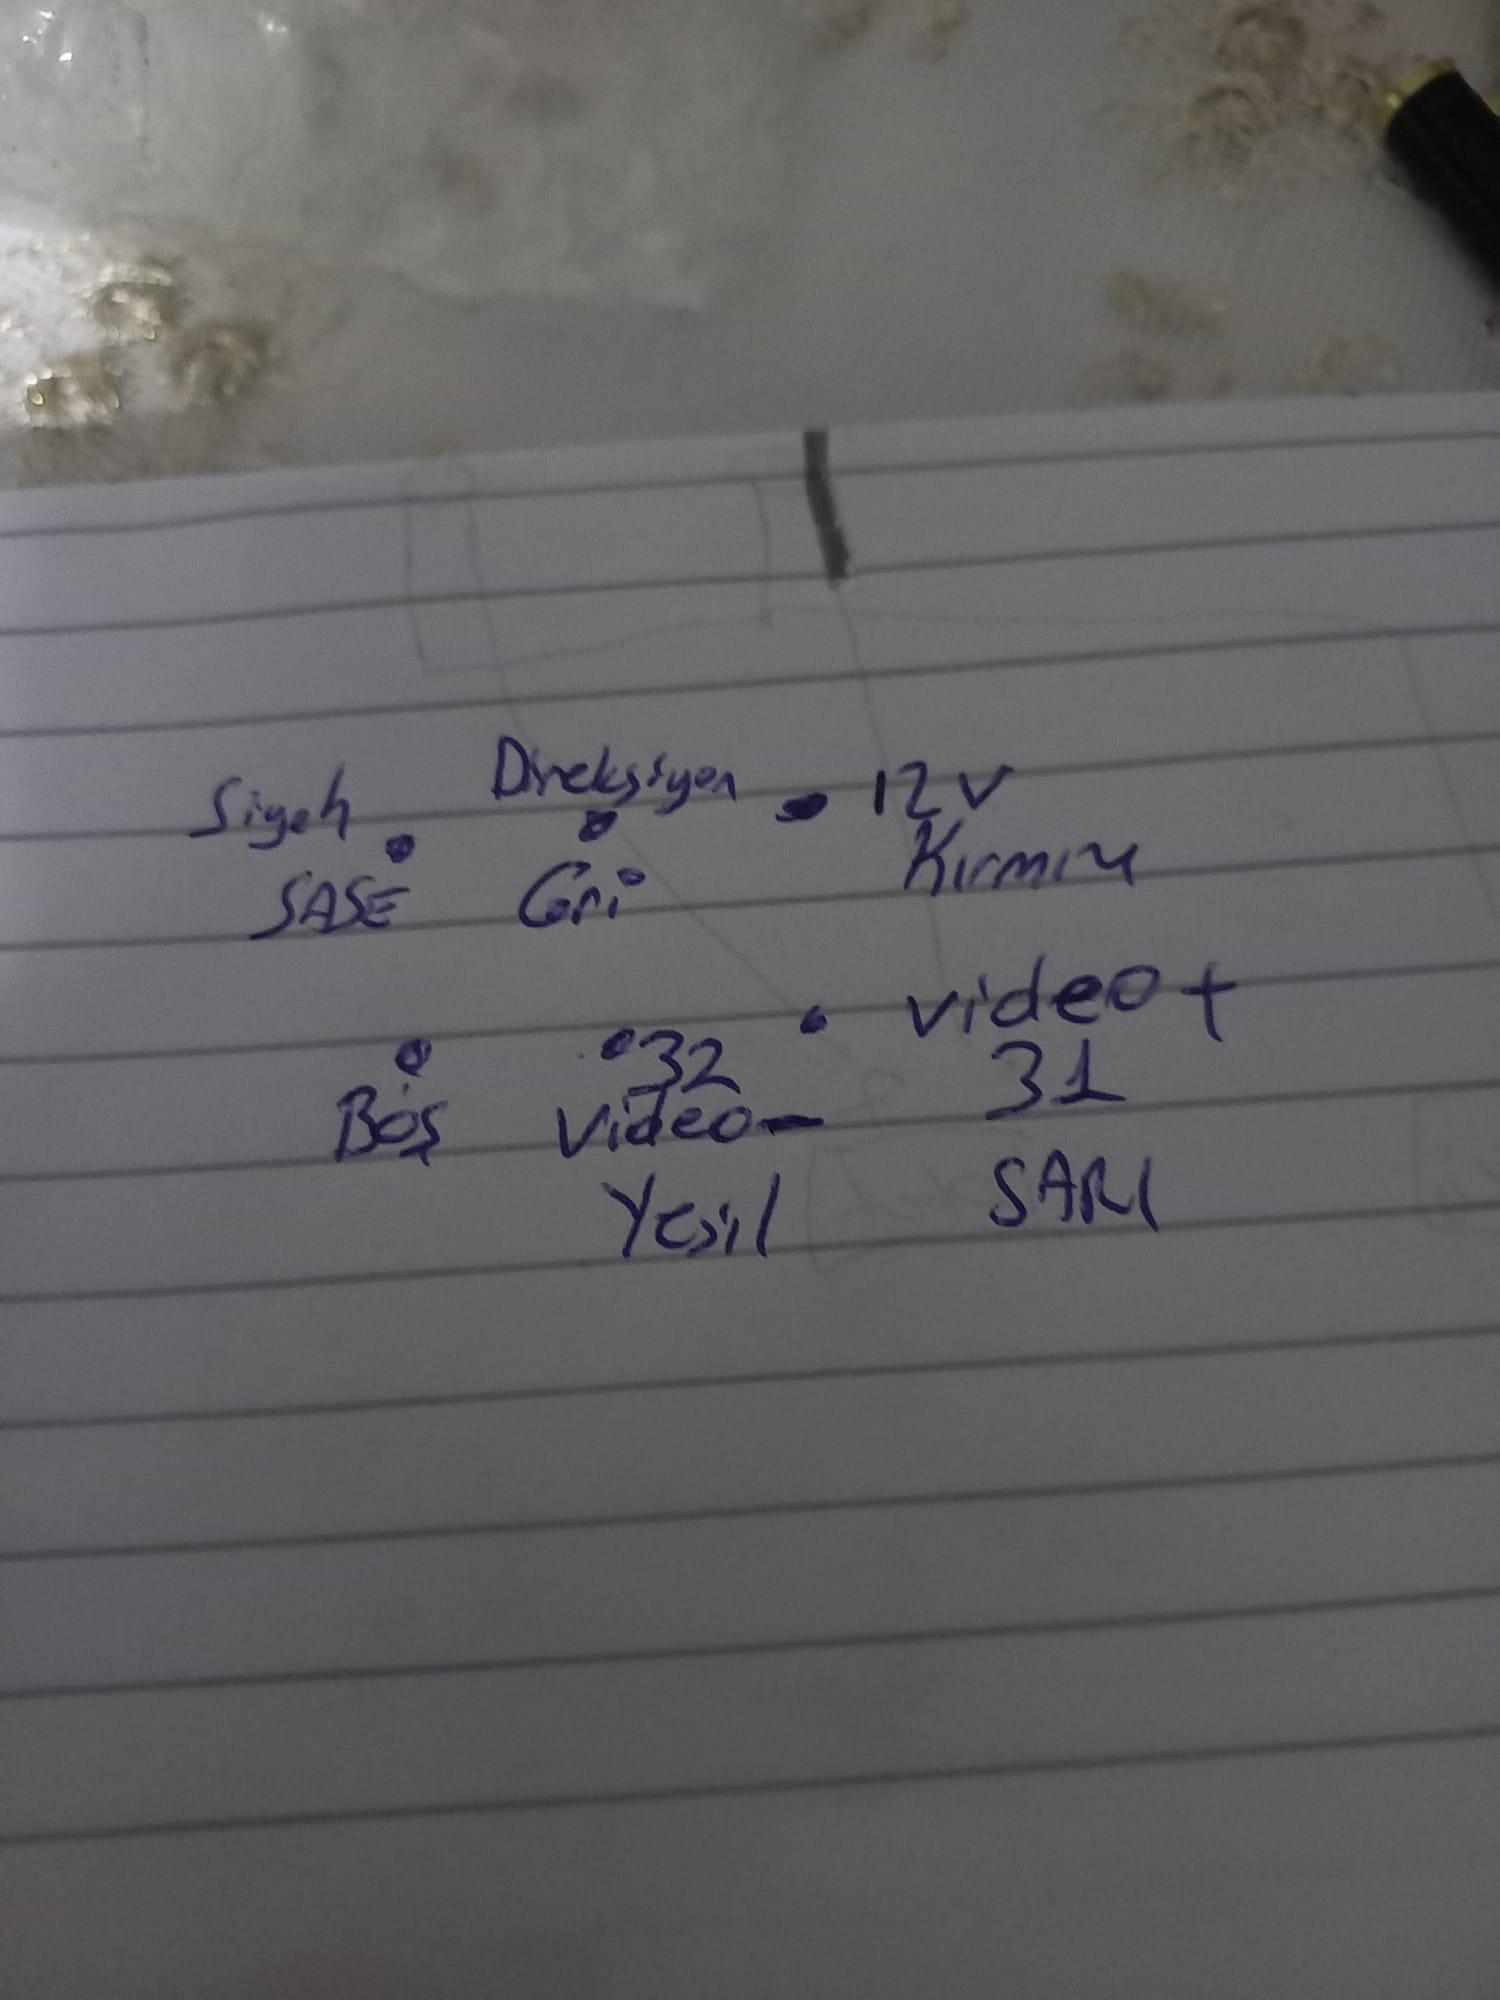 Siyah Direksiyon 12V
SASE Gri Kırmızı
32 video+
Boş video- 31
Yesil SARI